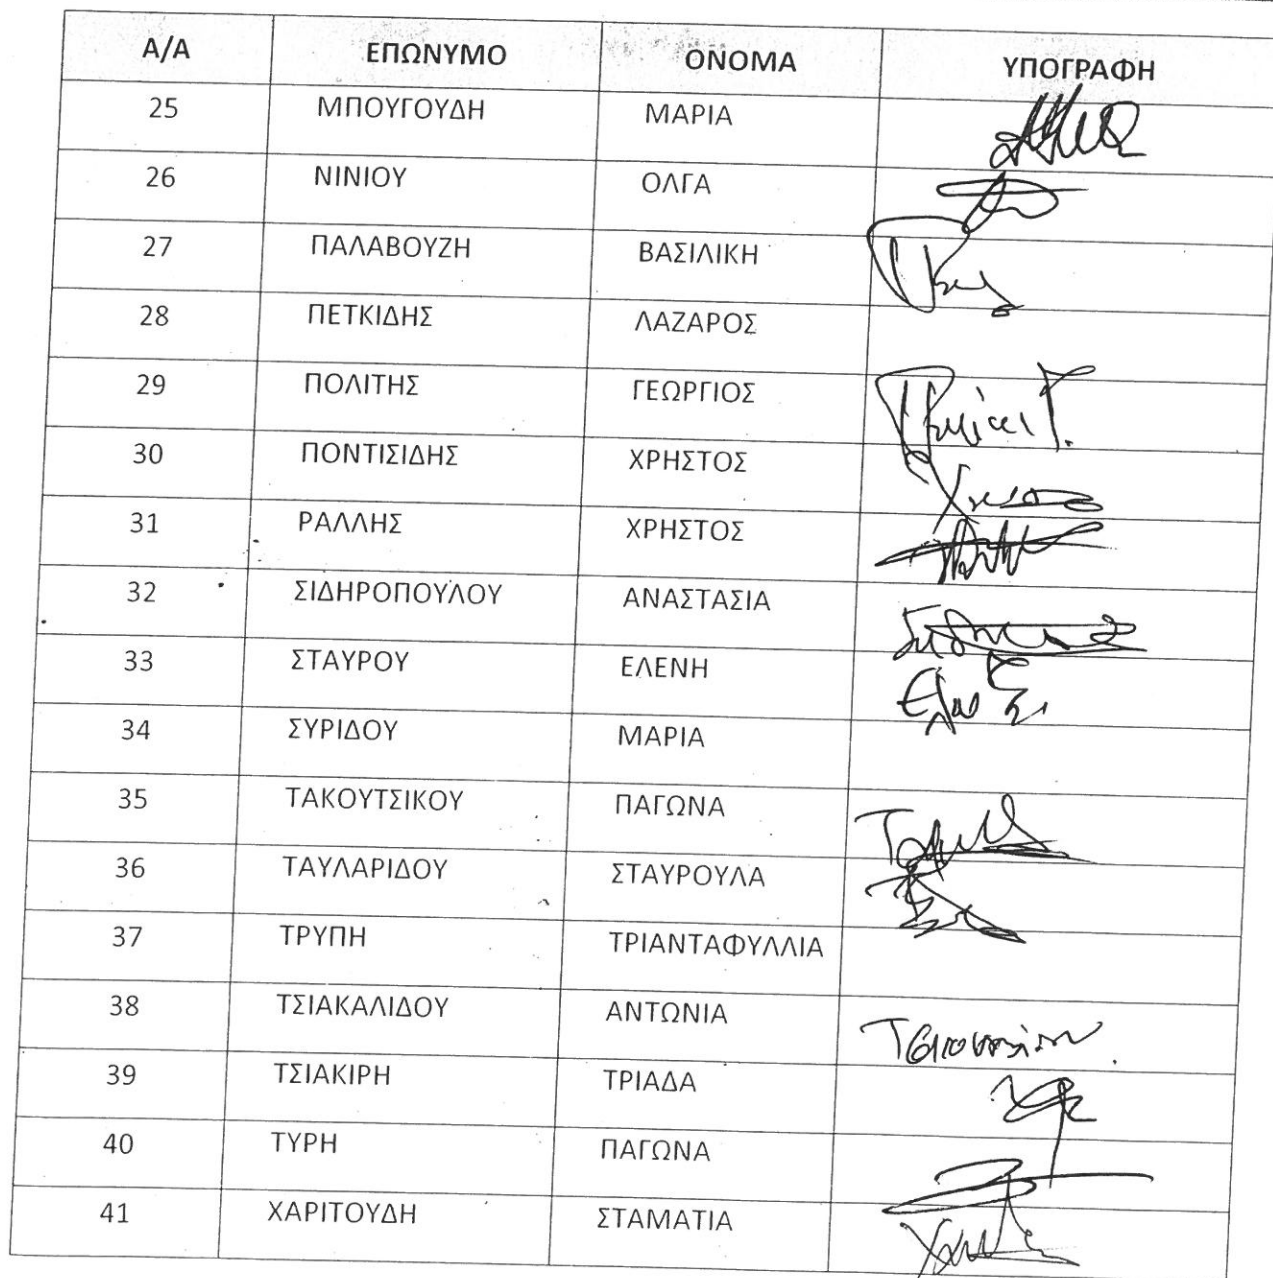 Α/Α ΕΠΩΝΥΜΟ ΟΝΟΜΑ ΥΠΟΓΡΑΦΗ
25 ΜΠΟΥΓΟΥΔΗ ΜΑΡΙΑ
26 ΝΙΝΙΟΥ ΟΛΓΑ
27 ΠΑΛΑΒΟΥΖΗ ΒΑΣΙΛΙΚΗ
28 ΠΕΤΚΙΔΗΣ ΛΑΖΑΡΟΣ
29 ΠΟΛΙΤΗΣ ΓΕΩΡΓΙΟΣ
30 ΠΟΝΤΙΣΙΔΗΣ ΧΡΗΣΤΟΣ
31 ΡΑΛΛΗΣ ΧΡΗΣΤΟΣ
32 ΣΙΔΗΡΟΠΟΥΛΟΥ ΑΝΑΣΤΑΣΙΑ
33 ΣΤΑΥΡΟΥ ΕΛΕΝΗ
34 ΣΥΡΙΔΟΥ ΜΑΡΙΑ
35 ΤΑΚΟΥΤΣΙΚΟΥ ΠΑΓΩΝΑ
36 ΤΑΥΛΑΡΙΔΟΥ ΣΤΑΥΡΟΥΛΑ
37 ΤΡΥΠΗ ΤΡΙΑΝΤΑΦΥΛΛΙΑ
38 ΤΣΙΑΚΑΛΙΔΟΥ ΑΝΤΩΝΙΑ
39 ΤΣΙΑΚΙΡΗ ΤΡΙΑΔΑ
40 ΤΥΡΗ ΠΑΓΩΝΑ
41 ΧΑΡΙΤΟΥΔΗ ΣΤΑΜΑΤΙΑ